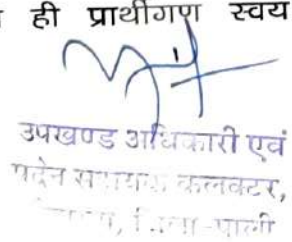 ही प्रार्थीगण स्वय
उपखण्ड अधिकारी एवं
पदेन सहायक कलक्टर,
जिला-पाली